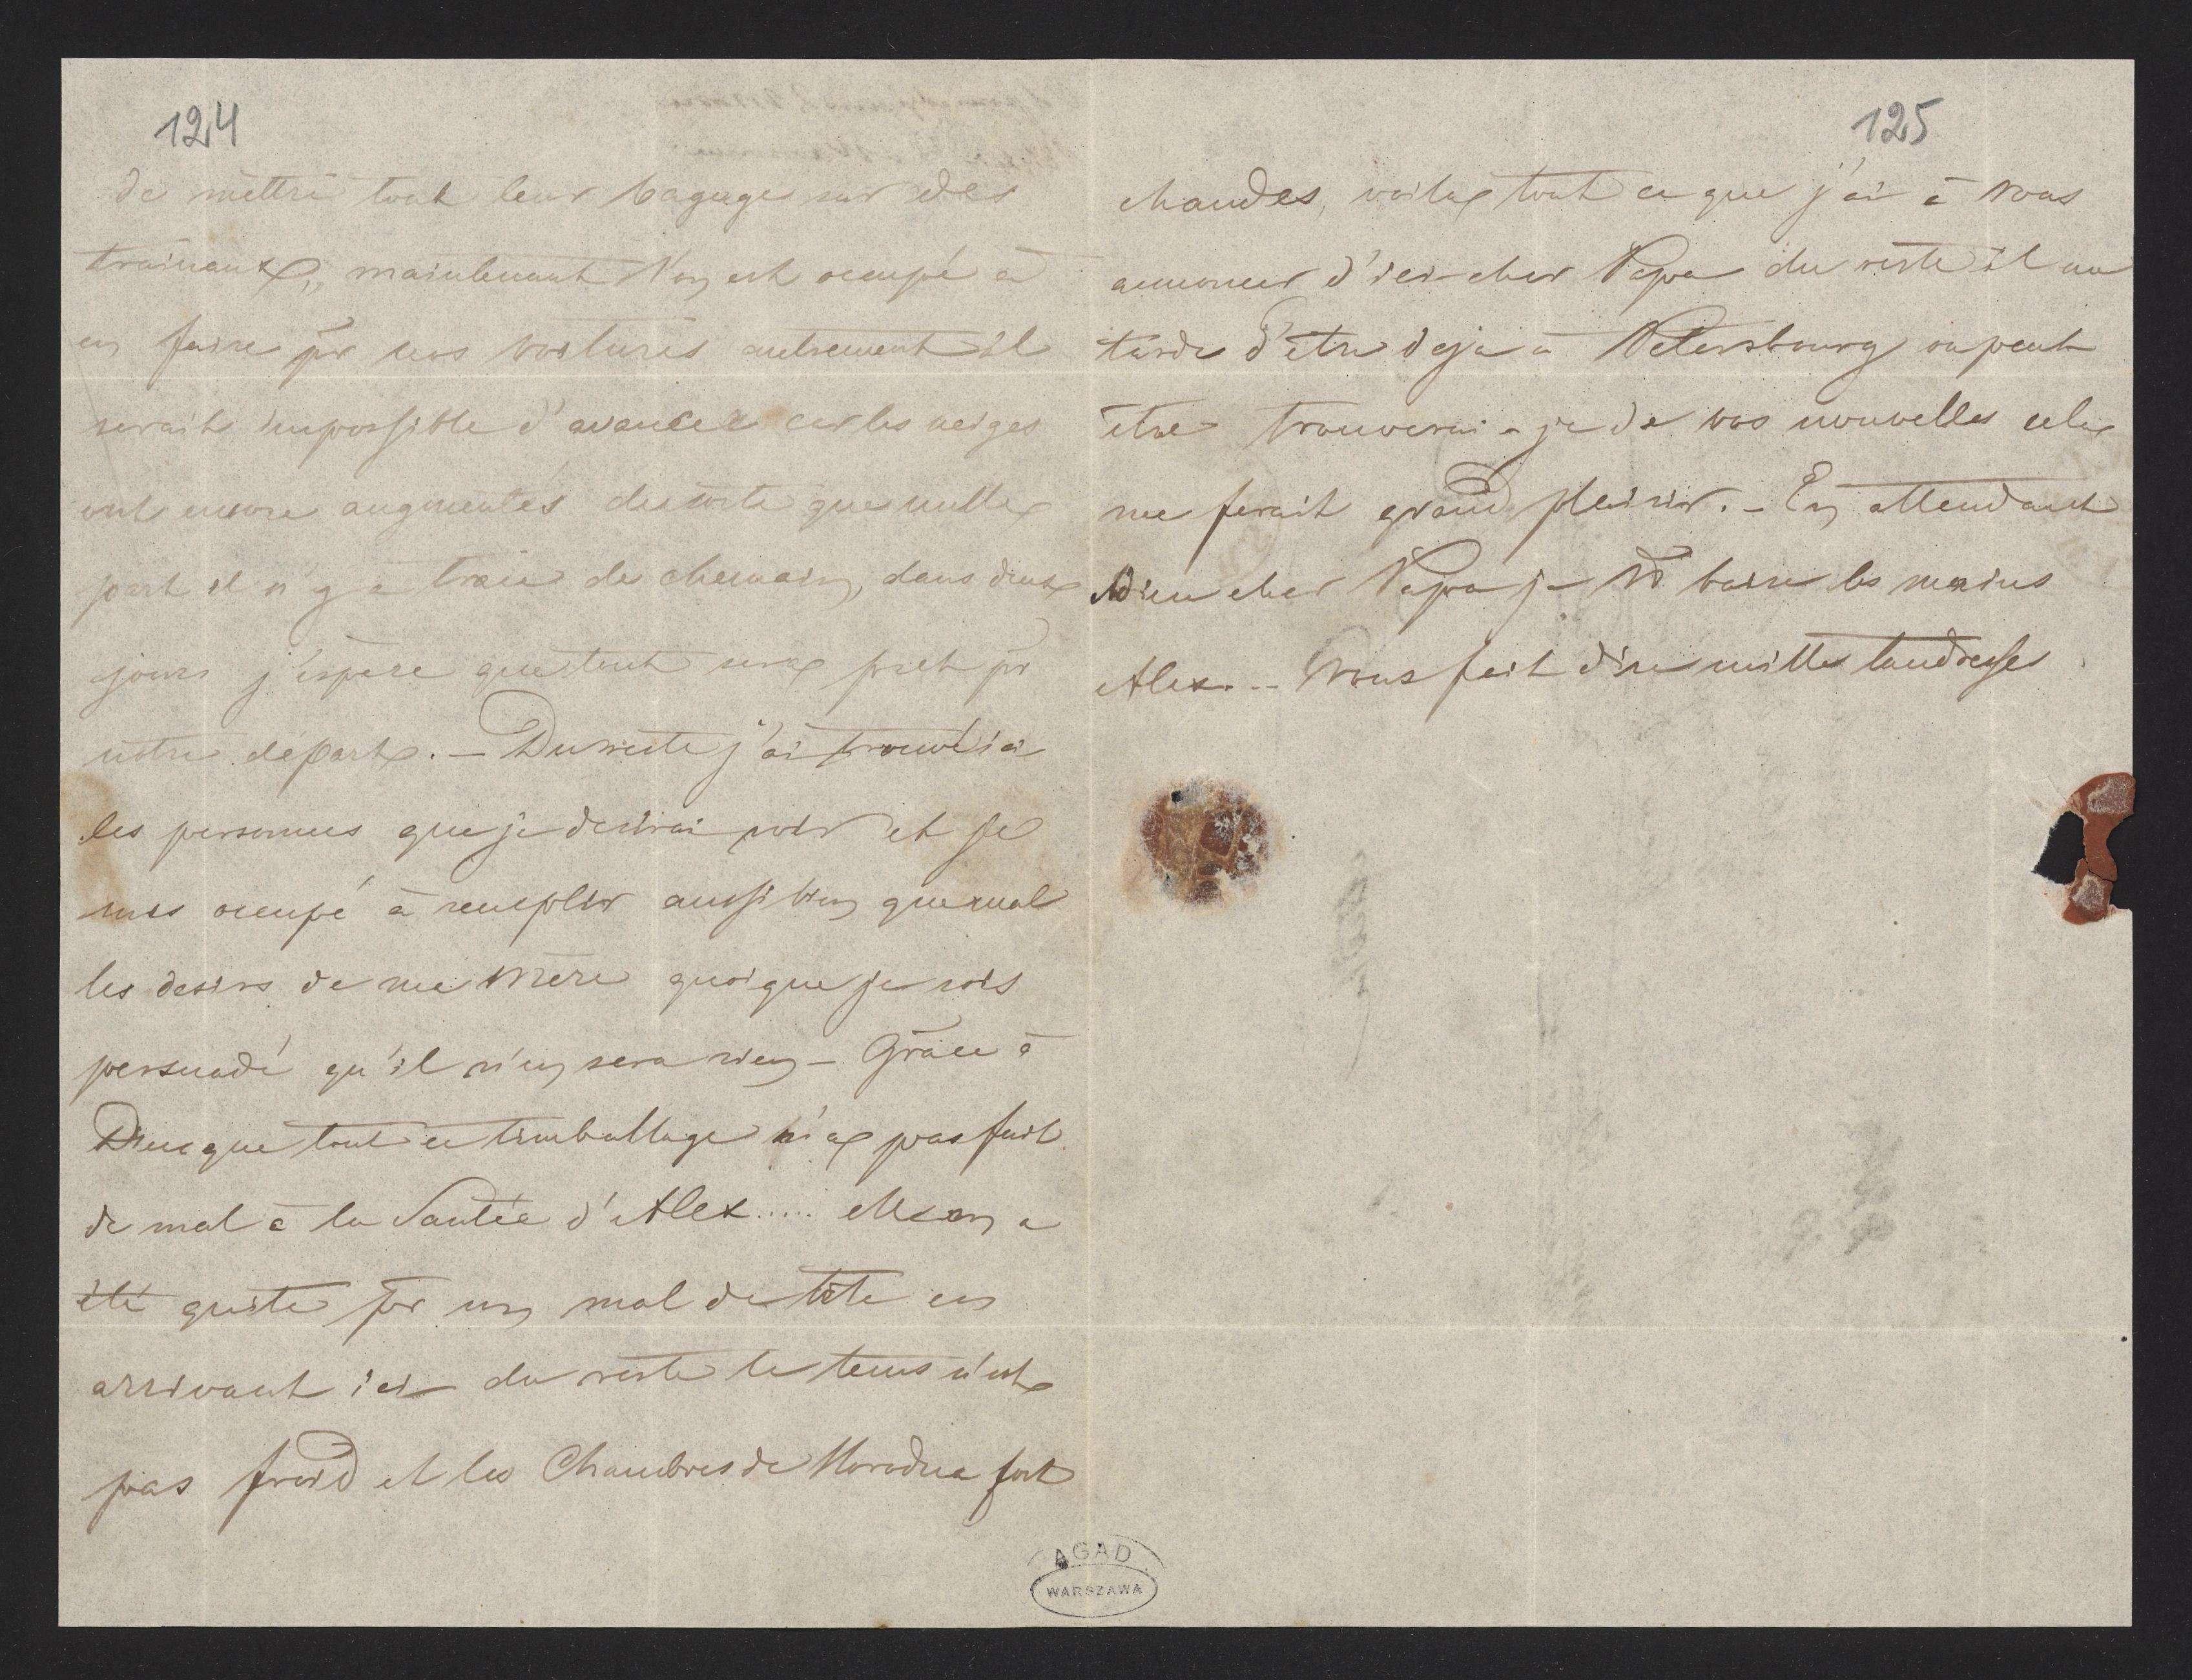 124
de mettre tout leur bagage sur des
trainaux, maintenant l'on est occupé à
en faire pr nos voitures autrement il
serait impossible d'avancer car les neiges
ont encore augmentés de sorte que nulle
part il n'y a trace de chemain, dans deux
jours j'espère que tout sera pret pr
notre départ. – Du reste j'ai trouvé ici
les personnes que je desirai voir et je
suis occupé à remplir aussi bien que mal
les desirs de ma Mère quoique je sois
persuadé qu'il n'en sera rien – Grâce à
Dieu que tout ce trimballage n'a pas fait
de mal à la Santée d'Alex..... elle en a
été quitte pr un mal de tête en
arrivant ici du reste le tems n'est
pas froid et les Chambres de fort
125
chaudes, voila tout ce que j'ai à vous
annoncer d'ici cher Papa du reste il me
tarde d'être deja à Petersbourg ou peut
être trouverai-je de vos nouvelles cela
me ferait grand plaisir. – En attendant
Adieu cher Papa je Vs baise les mains
Alex... Vous fait dire mille tendresses
AGAD
WARSZAWA